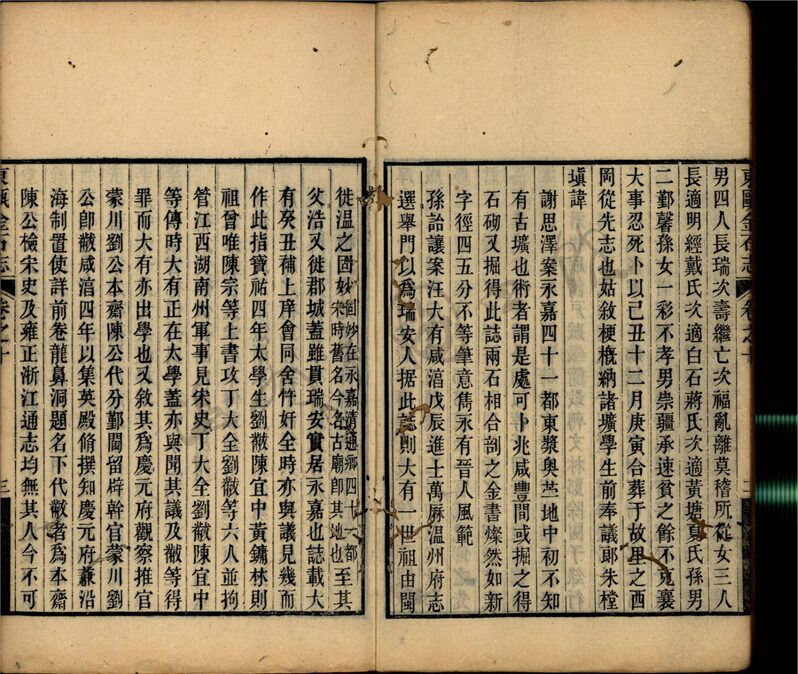 男四人長瑞次壽繼亡次福亂離莫稽所從女三人
長適明經戴氏次適白石蔣氏次適黃塘夏氏孫男
二鄞馨孫女一彩不孝男崇疆承速貧之餘不克襄
大事忍死卜以己丑十二月庚寅合葬于故里之西
岡從先志也姑敘梗概納諸壙學生前奉議郎朱樘
塡諱
謝思澤案永嘉四十一都東漿奥苙地中初不知
有古壙也術者謂是處可卜兆咸豐間或掘之得
石砌又掘得此誌兩石相合剖之金書燦然如新
字徑四五分不等筆意雋永有晉人風範
孫詒讓案汪大有咸湻戊辰進士萬厤溫州府志
選舉門以爲瑞安人据此誌則大有一世祖由閩
東甌金石志
卷之十
二
徙温之固妙固妙在永嘉清通鄉四十一都
宋時舊名今名古廟卽其地也至其
父浩又徙郡城蓋雖貫瑞安實居永嘉也誌載大
有癸丑補上庠會同舍忤奸全時亦與議見幾而
作此指寶祐四年太學生劉黻陳宜中黃鏞林則
祖曾唯陳宗等上書攻丁大全劉黻等六人並拘
管江西湖南州軍事見宋史丁大全劉黻陳宜中
等傳時大有正在太學蓋亦與聞其議及黻等得
罪而大有亦出學也又敘其爲慶元府觀察推官
蒙川劉公本齋陳公代分鄞閫留辟幹官蒙川劉
公卽黻咸湻四年以集英殿脩撰知慶元府兼沿
海制置使詳前卷龍鼻洞題名下代黻者爲本齋
陳公檢宋史及雍正浙江通志均無其人今不可
東甌金石志
卷之十
三